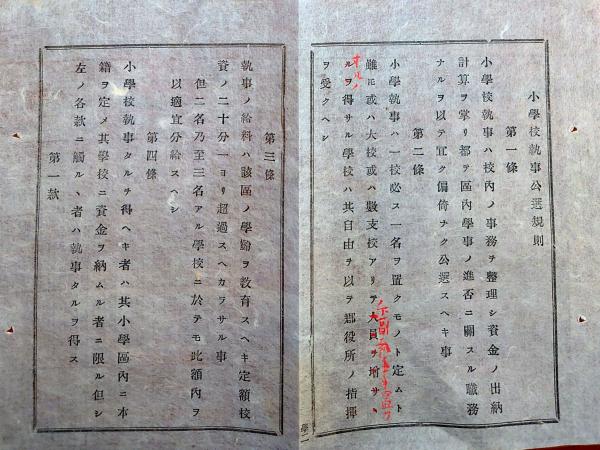 小學校執事公選規則
第一條
小學校執事ハ校內ノ事務ヲ整理シ資金ノ出納
計算ヲ掌リ都テ區內學事ノ進否ニ關スル職務
ナルヲ以テ宜ク偏倚ナク公選スヘキ事
第二條
小學執事ハ一校必ス一名ヲ置クモノト定ムト
雖𪜈或ハ大校或ハ數支校アリテ人員ヲ增サヽ
ルヲ得サル學校ハ其自由ヲ以テ郡役所ノ指揮
ヲ受クヘシ
學一
第三條
執事ノ給料ハ該區ノ學齡ヲ教育スヘキ定額校
資ノ二十分一ヨリ超過スヘカラサル事
但二名乃至三名アル學校ニ於テモ此額內ヲ
以適宜分給スヘシ
第四條
小學校執事タルヲ得ヘキ者ハ其小學區內ニ本
籍ヲ定メ其學校ニ資金ヲ納ムル者ニ限ル但シ
左ノ各款ニ觸ルヽ者ハ執事タルヲ得ス
第一款